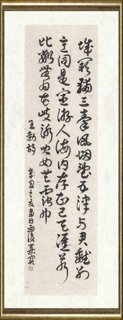 城闕輔三秦風煙望五津與君離別
意同是宦遊人海內存知己天涯若
比鄰無為在歧路兒女共霑巾
王勃詩